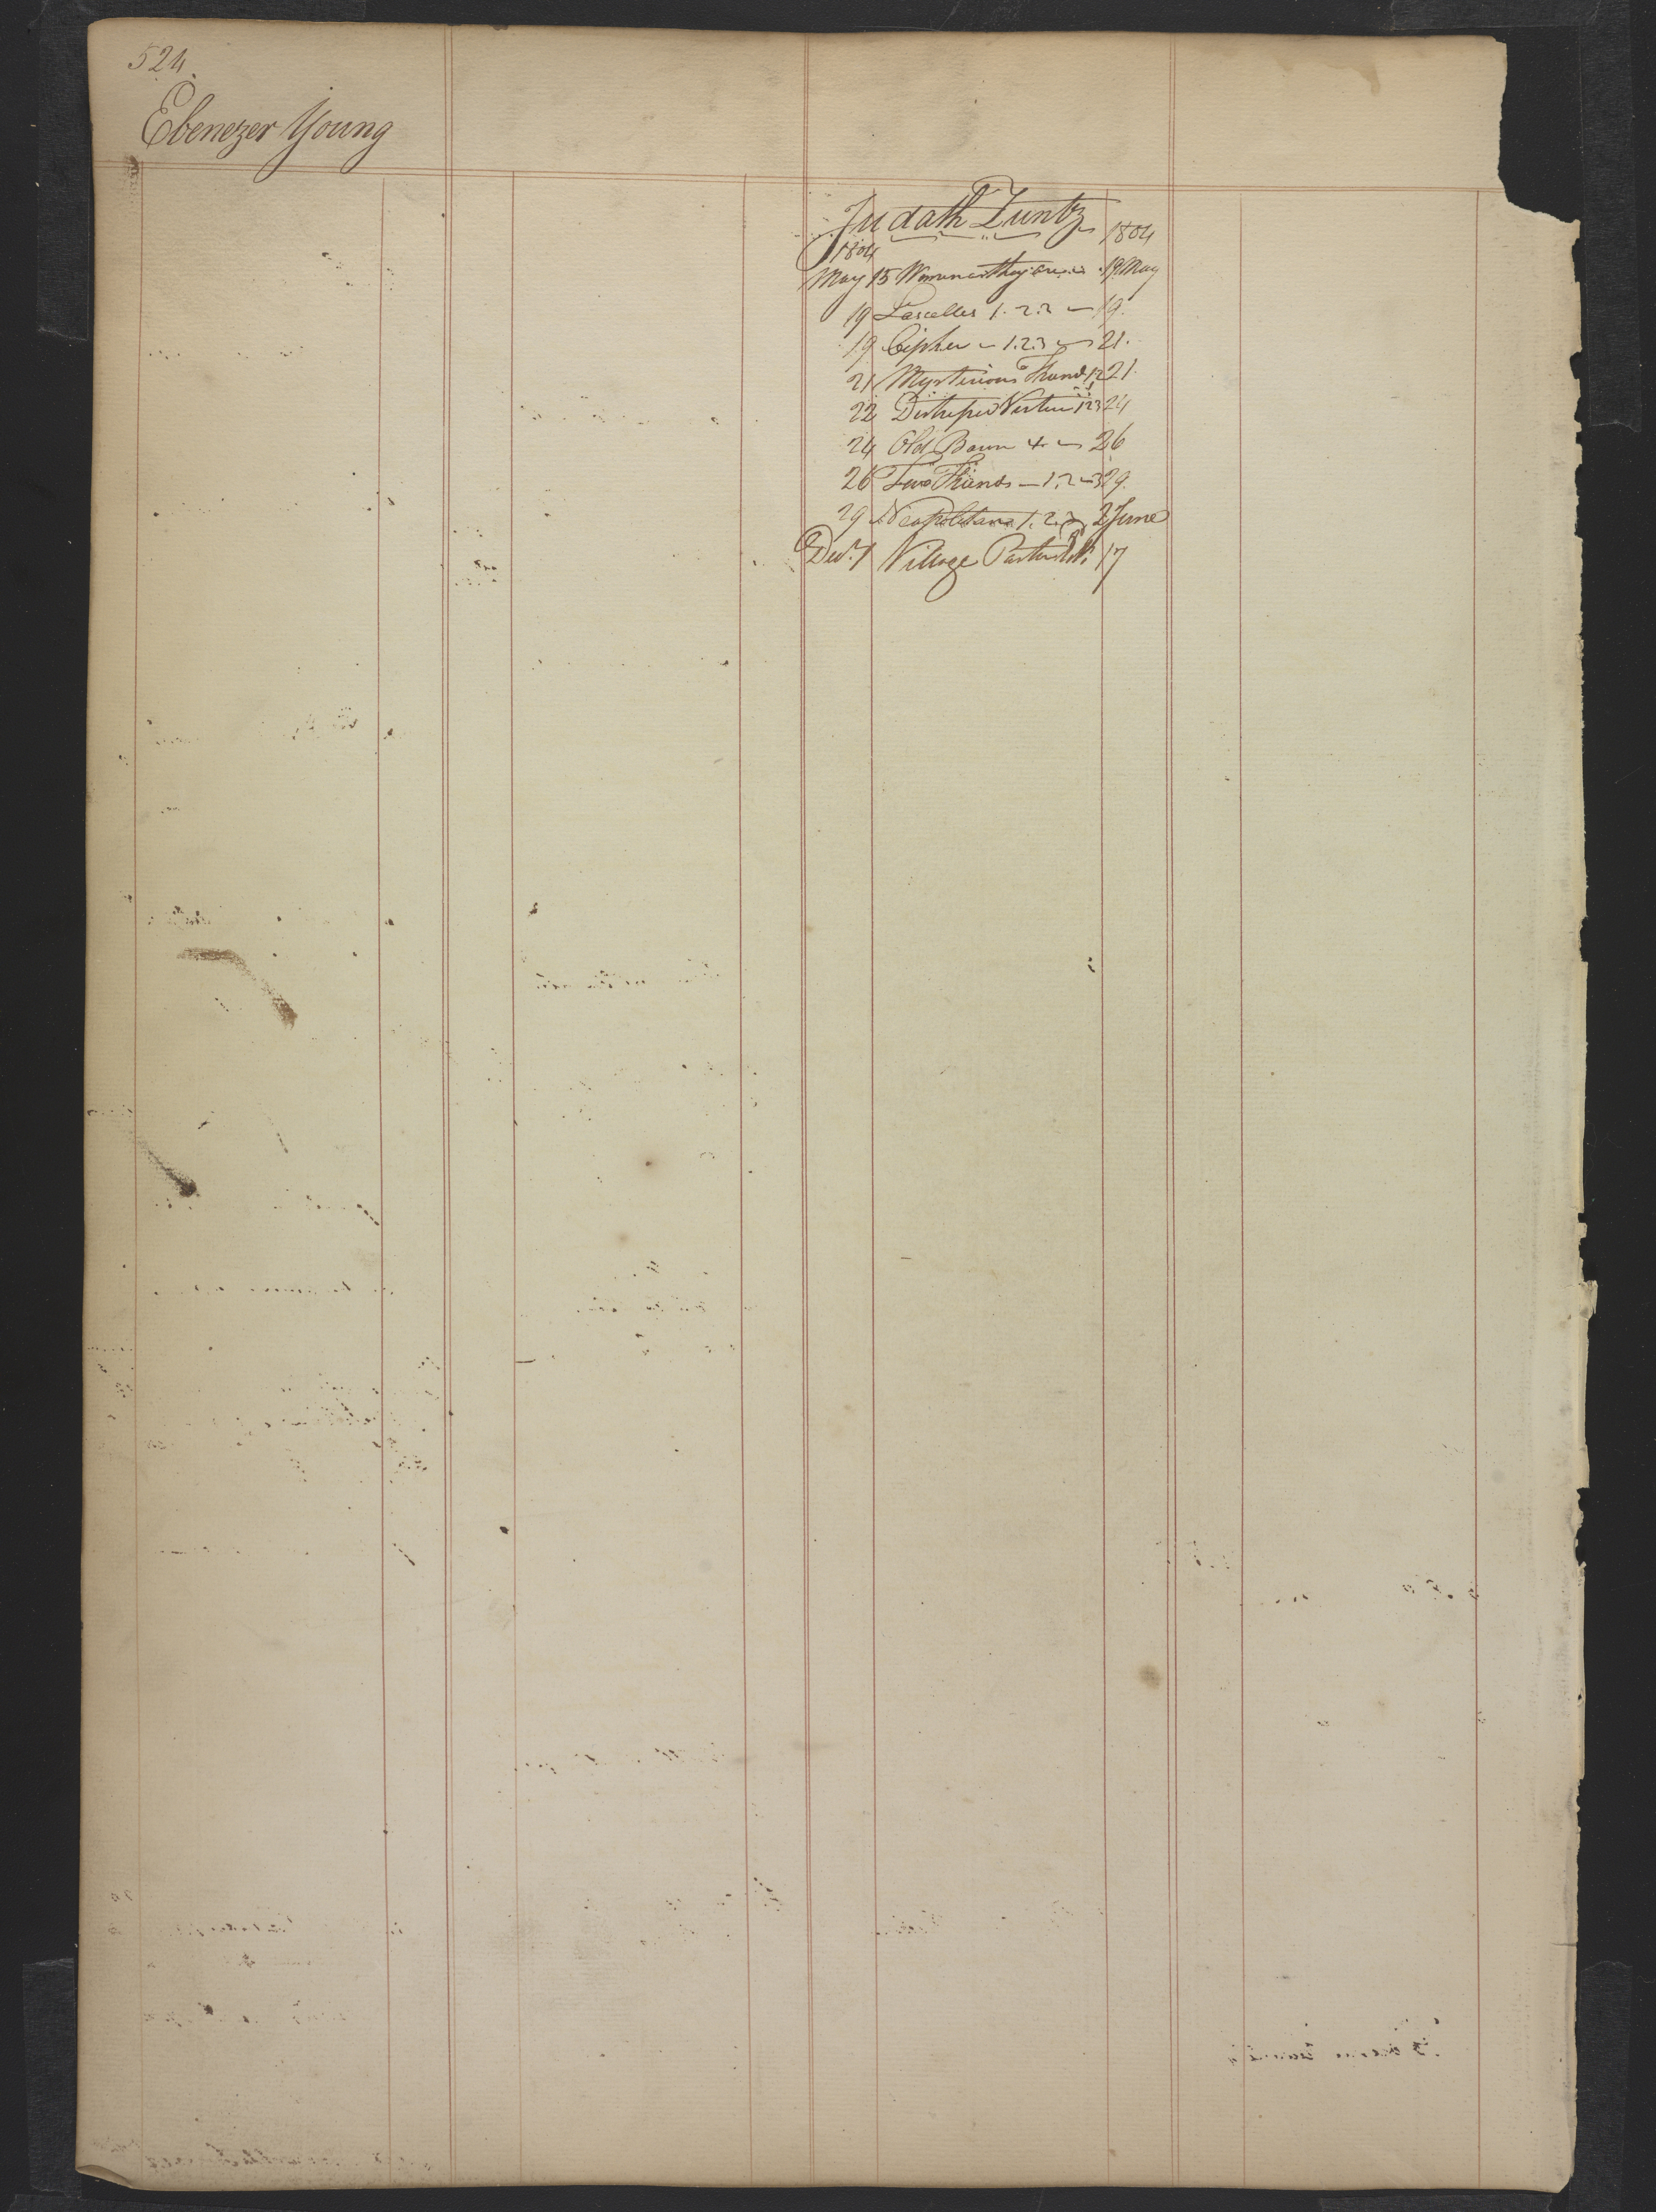 524
Ebenezer Young
Judath Zuntz
1804 1804
May 15 Women as they are 19 May
19 Lascelles 1.2.3 19
19 Cipher 1.2.3 21.
21 Mysterious Friend 1,2 21.
22 Distressed Virtue 1 2 3 24
24 Old Baron 4to 26
26 Two Friends 1.2 29.
29 Neapolitana 1.2.3 2 June
Decr. 7 Village Pastor 17